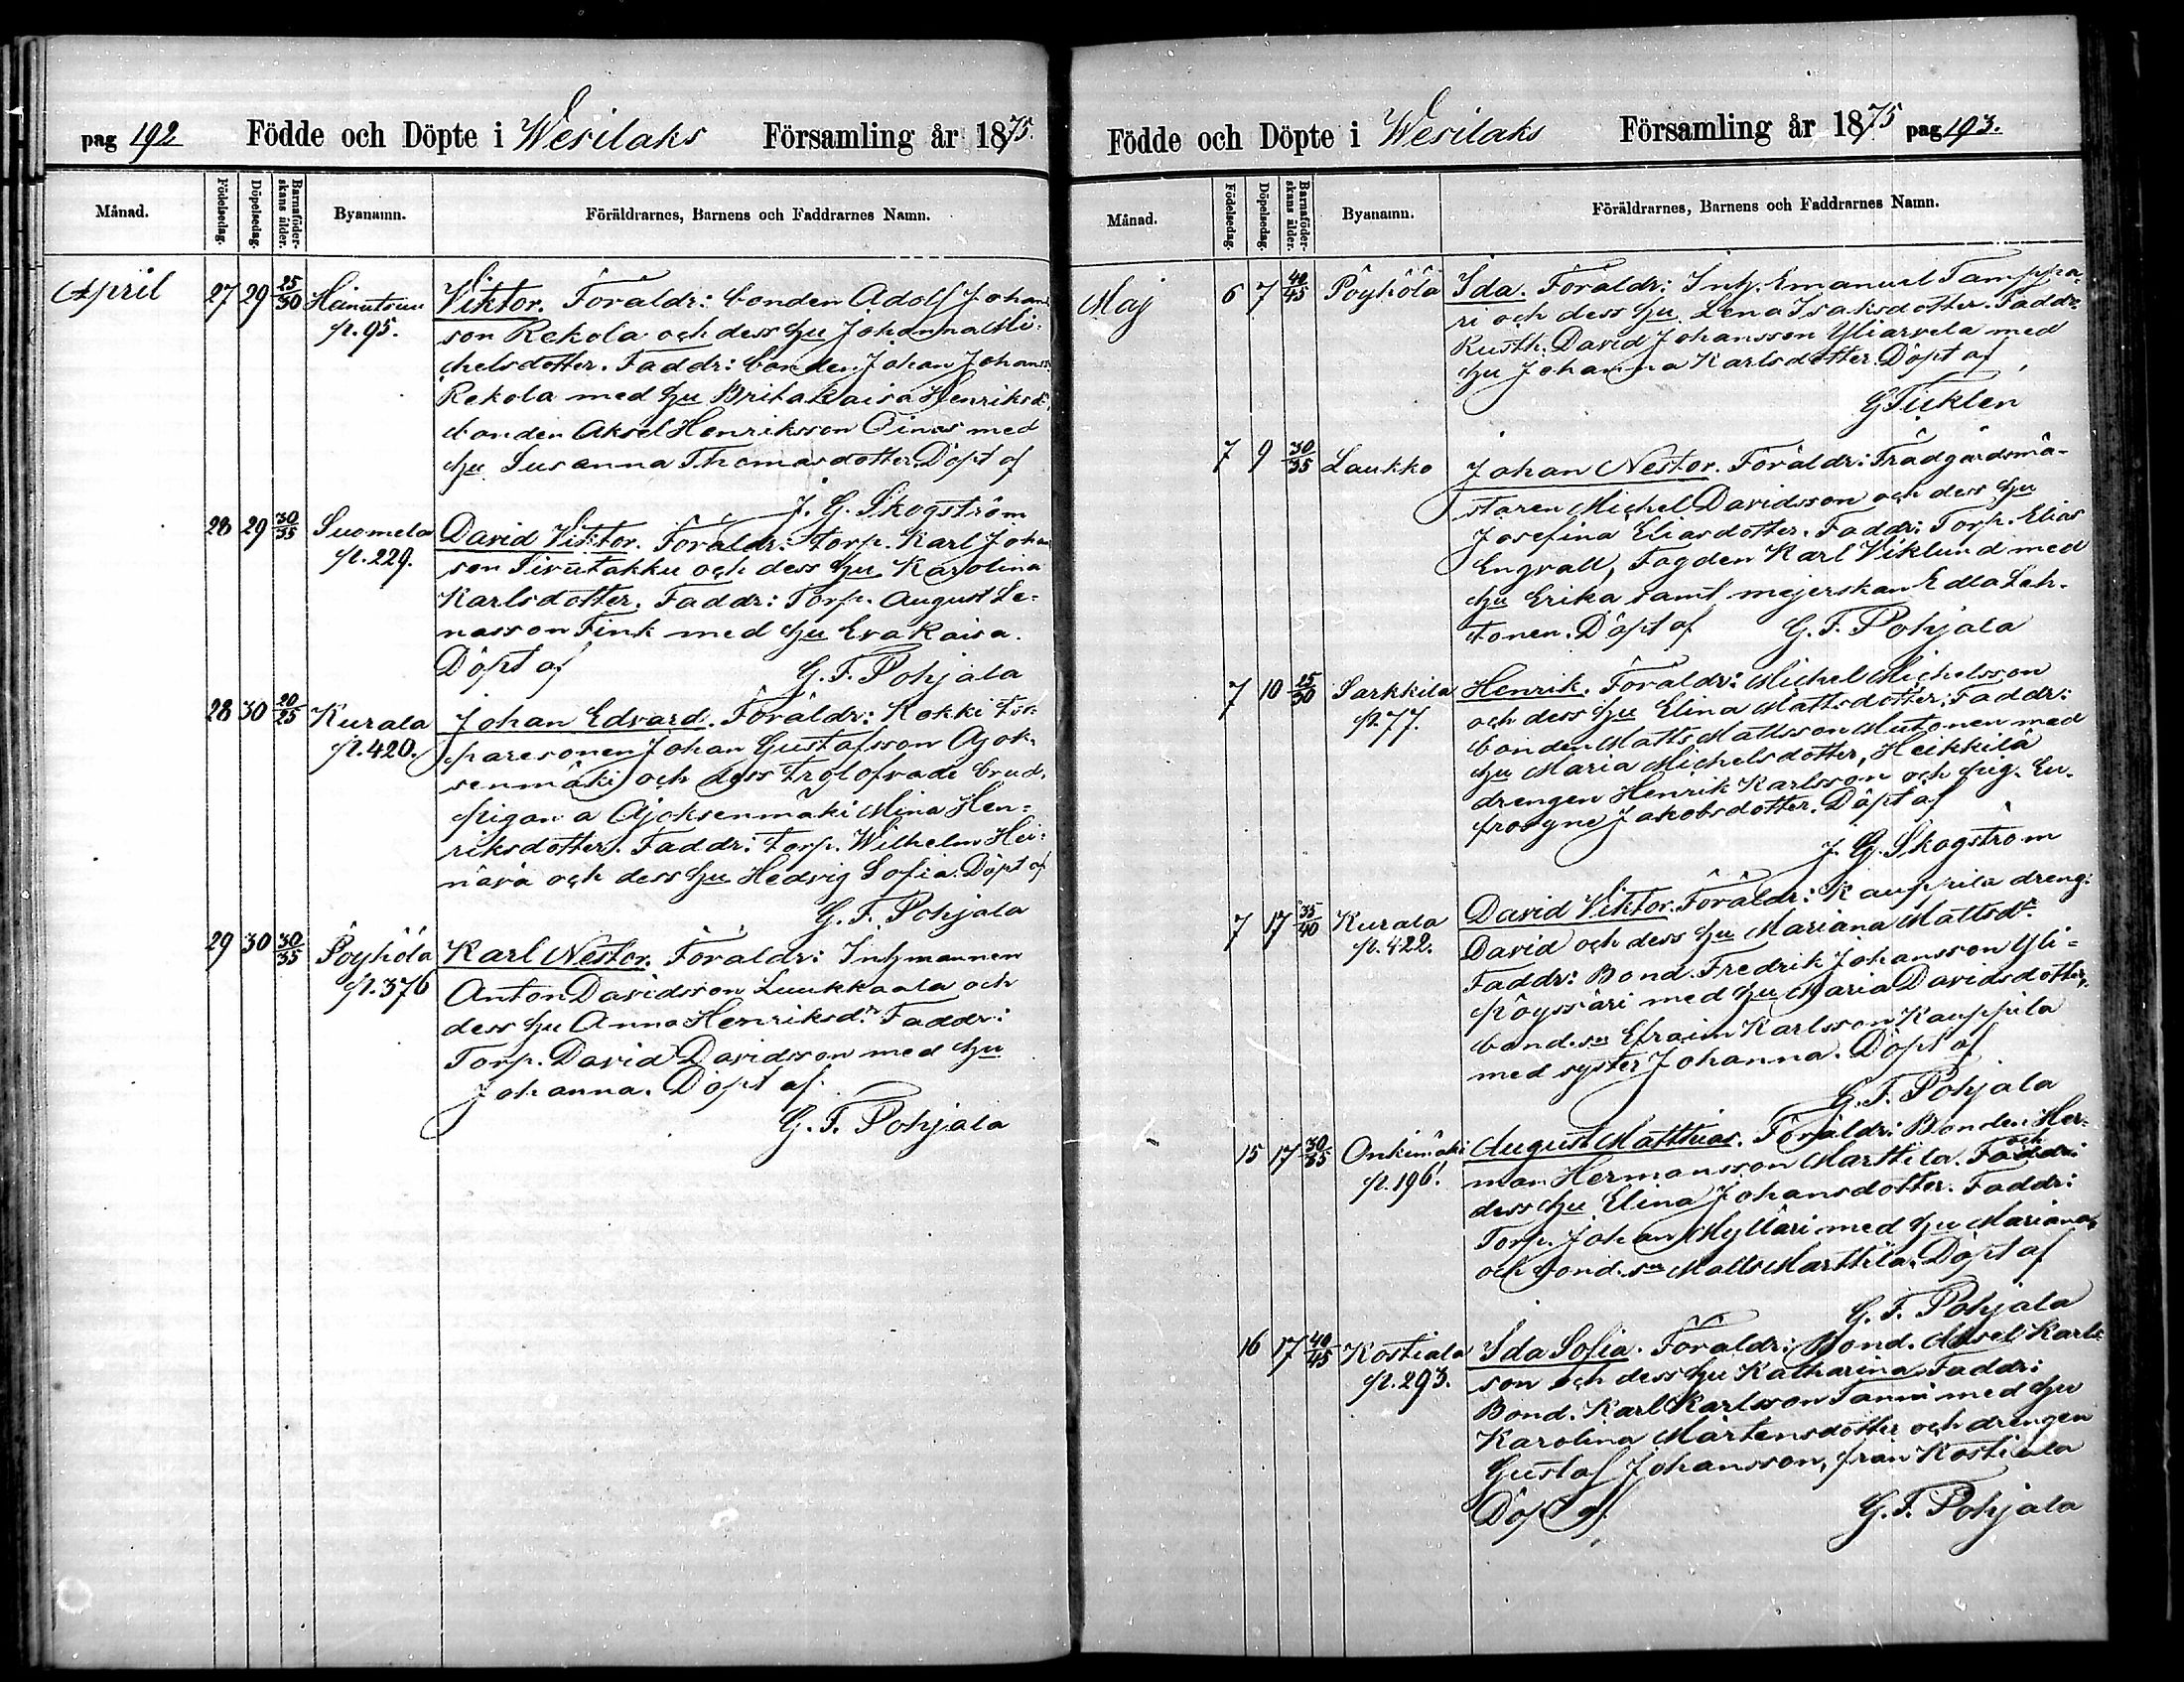 pag 192 Födde och Döpte i Wesilaks Församling år 1875.
Månad. Födelsedag. Döpelsedag. Barnaföderskans ålder. Byanamn. Föräldrarnes, Barnens och Faddrarnes Namn.
April 27 29 25/30 Viktor. Föräldr: bonden Adolf Johan
p. 95. son Rekola och dess hu Johanna Mi-
chelsdotter. Faddr: bonden Johan Johans:
Rekola med hu Brita Kaisa Henriksd.
bonden Aksel Henriksson Oinas med
hu Susanna Thomasdotter. Döpt af
J. G. Skogström
28 29 30/35 Suomela David Viktor. Föräldr: torp. Karl Johan
p. 229. son och dess hu Karolina
Karlsdotter. Faddr: Torp. August Le-
nasson Fink med hu Eva Kaisa.
Döpt af G. F. Pohjala
28 30 20/25 Kurala Johan Edvard. Föräldr: Kokki tor-
p. 420. paresonen Johan Gustafsson Ajok-
senmäki och dess trolofvade brud-
pigan a Ajoksenmäki Mina Hen-
riksdotter. Faddr: torp. Wilhelm Hei-
nävä och dess hu Hedvig Sofia. Döpt af
G. F. Pohjala
29 30 30/35 Pöyhölä Karl Nestor. Föräldr: Inhmannen
p. 376 Anton Davidsson Luukkaala och
dess hu Anna Henriksdr. Faddr:
Torp. David Davidsson med hu
Johanna. Döpt af
G. F. Pohjala
Födde och Döpte i Wesilaks Församling år 1875 pag 193.
Månad. Födelsedag. Döpelsedag. Barnaföderskans ålder. Byanamn. Föräldrarnes, Barnens och Faddrarnes Namn.
Maj 6 7 40/45 Pöyhölä Ida. Föräldr: Inh. Emanuel Tamppa-
ri och dess hu Lena Isaksdotter. Faddr:
Rusth. David Johansson Yliarvela med
hu Johanna Karlsdotter. Döpt af
7 9 30/35 Laukko Johan Nestor. Föräldr: Trädgårdsmä-
staren Michel Davidsson och dess hu
Josefina Eliasdotter. Faddr: Torp. Elias
Engvall, Fagden Karl Viklund med
hu Erika samt mejerskan Edla Leh-
tonen. Döpt af G. F. Pohjala
7 10 25/30 Sarkkila Henrik. Föräldr: Michel Michelsson
p. 77. och dess hu Elina Mattsdotter. Faddr:
bonden Matts Mattsson Mutonen med
hu Maria Michelsdotter, Heikkilä
drengen Henrik Karlsson och pig. Eu-
frosyne Jakobsdotter. Döpt af
J. G. Skogström
7 17 35/40 Kurala David Viktor. Föräldr: Kauppila dreng.
p. 422. David och dess hu Mariana Mattsdr.
Faddr: Bond. Fredrik Johansson Yli-
pöyssäri med hu Maria Davidsdotter,
bond. sn Efraim Karlsson Kauppila
med syster Johanna. Döpt af
G. F. Pohjala
15 17 30/35 Onkimäki August Matthias. Föräldr: Bonden Her-
p. 196. man Hermansson Marttila. Faddr: och
dess hu Elina Johansdotter. Faddr:
Torp. Johan Mylläri med hu Mariana,
och bond. sn Matts Marttila. Döpt af
G. F. Pohjala
16 17 40/45 Kostiala Ida Sofia. Föräldr: Bond. Aksel Karls-
p. 293. son och dess hu Katharina. Faddr:
Bond. Karl Karlsson med hu
Karolina Mårtensdotter och drengen
Gustaf Johansson, från Kostiala
Döpt af G. F. Pohjala